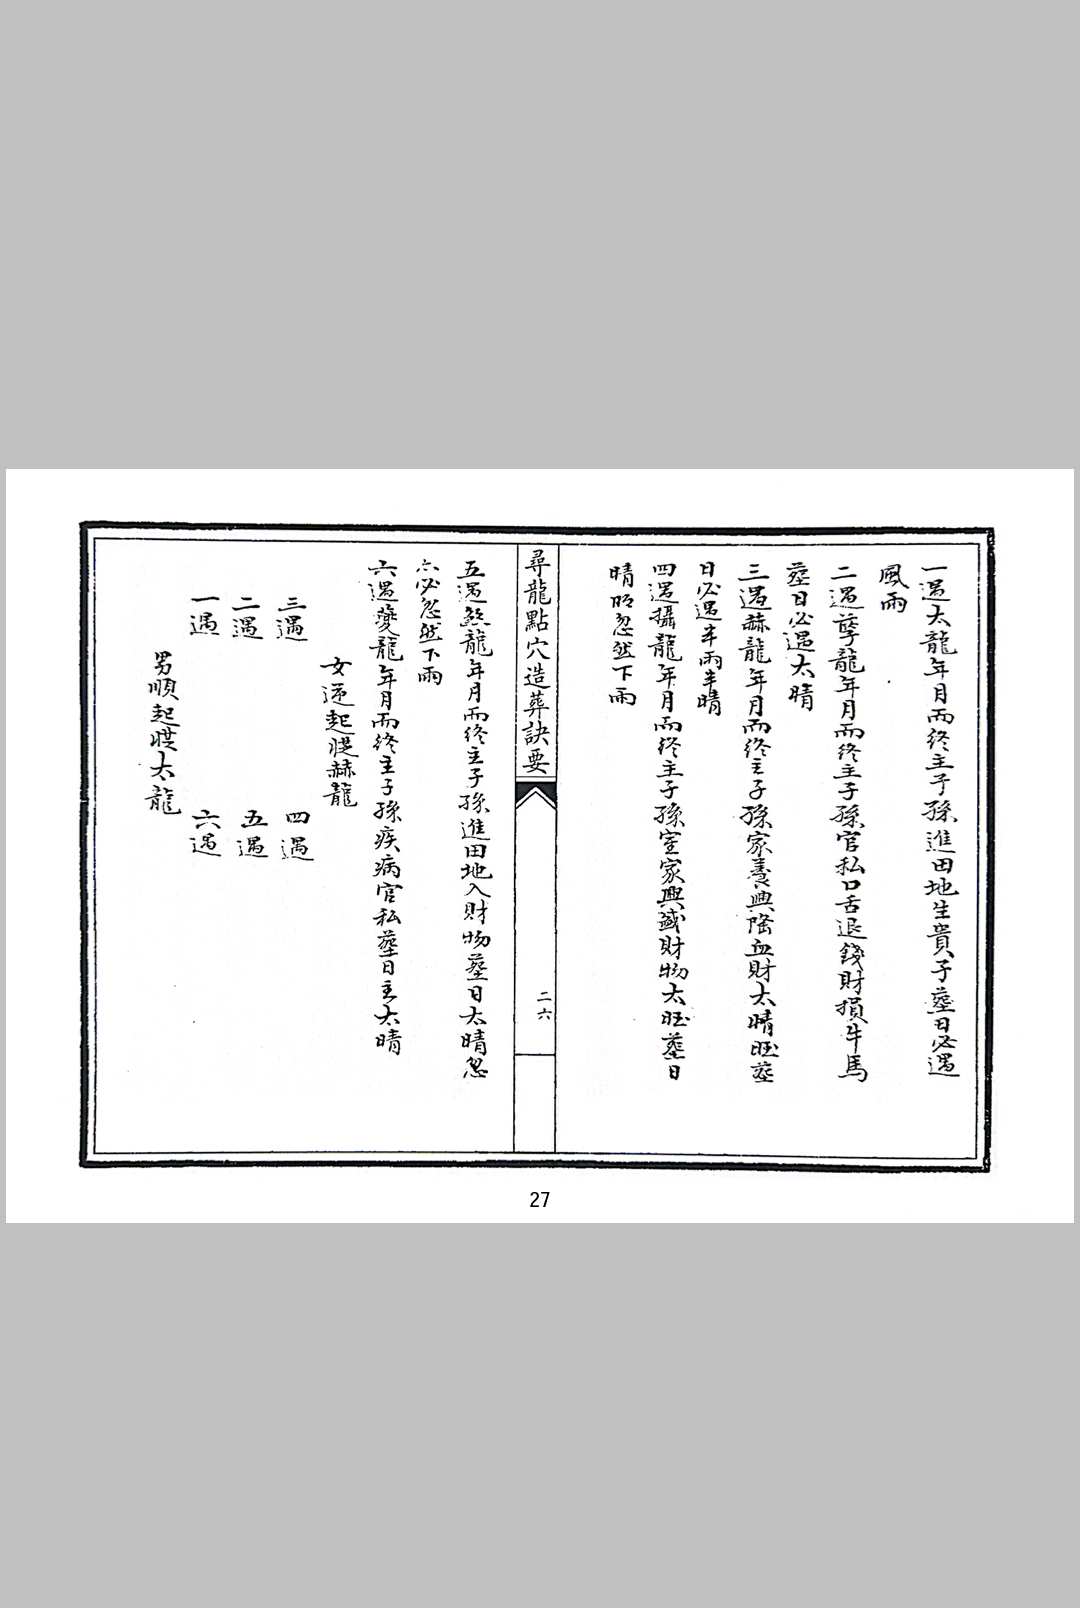 一遇太龍年月而終主子孫進田地生貴子塟日必遇
風雨
二遇孽龍年月而終主子孫官私口舌退錢財損牛馬
塟日必遇太晴
三遇赫龍年月而終主子孫家養興隆血財太晴旺塟
日必遇半雨半晴
四遇攝龍年月而終主子孫室家興盛財物太旺塟日
晴明忽然下雨
尋龍點穴造葬訣要
二六
五遇煞龍年月而終主子孫進田地入財物塟日太晴忽
必忽然下雨
六遇變龍年月而終主子孫疾病官私塟日主太晴
女逆起赫龍
三遇 四遇
二遇 五遇
一遇 六遇
男順起太龍
27